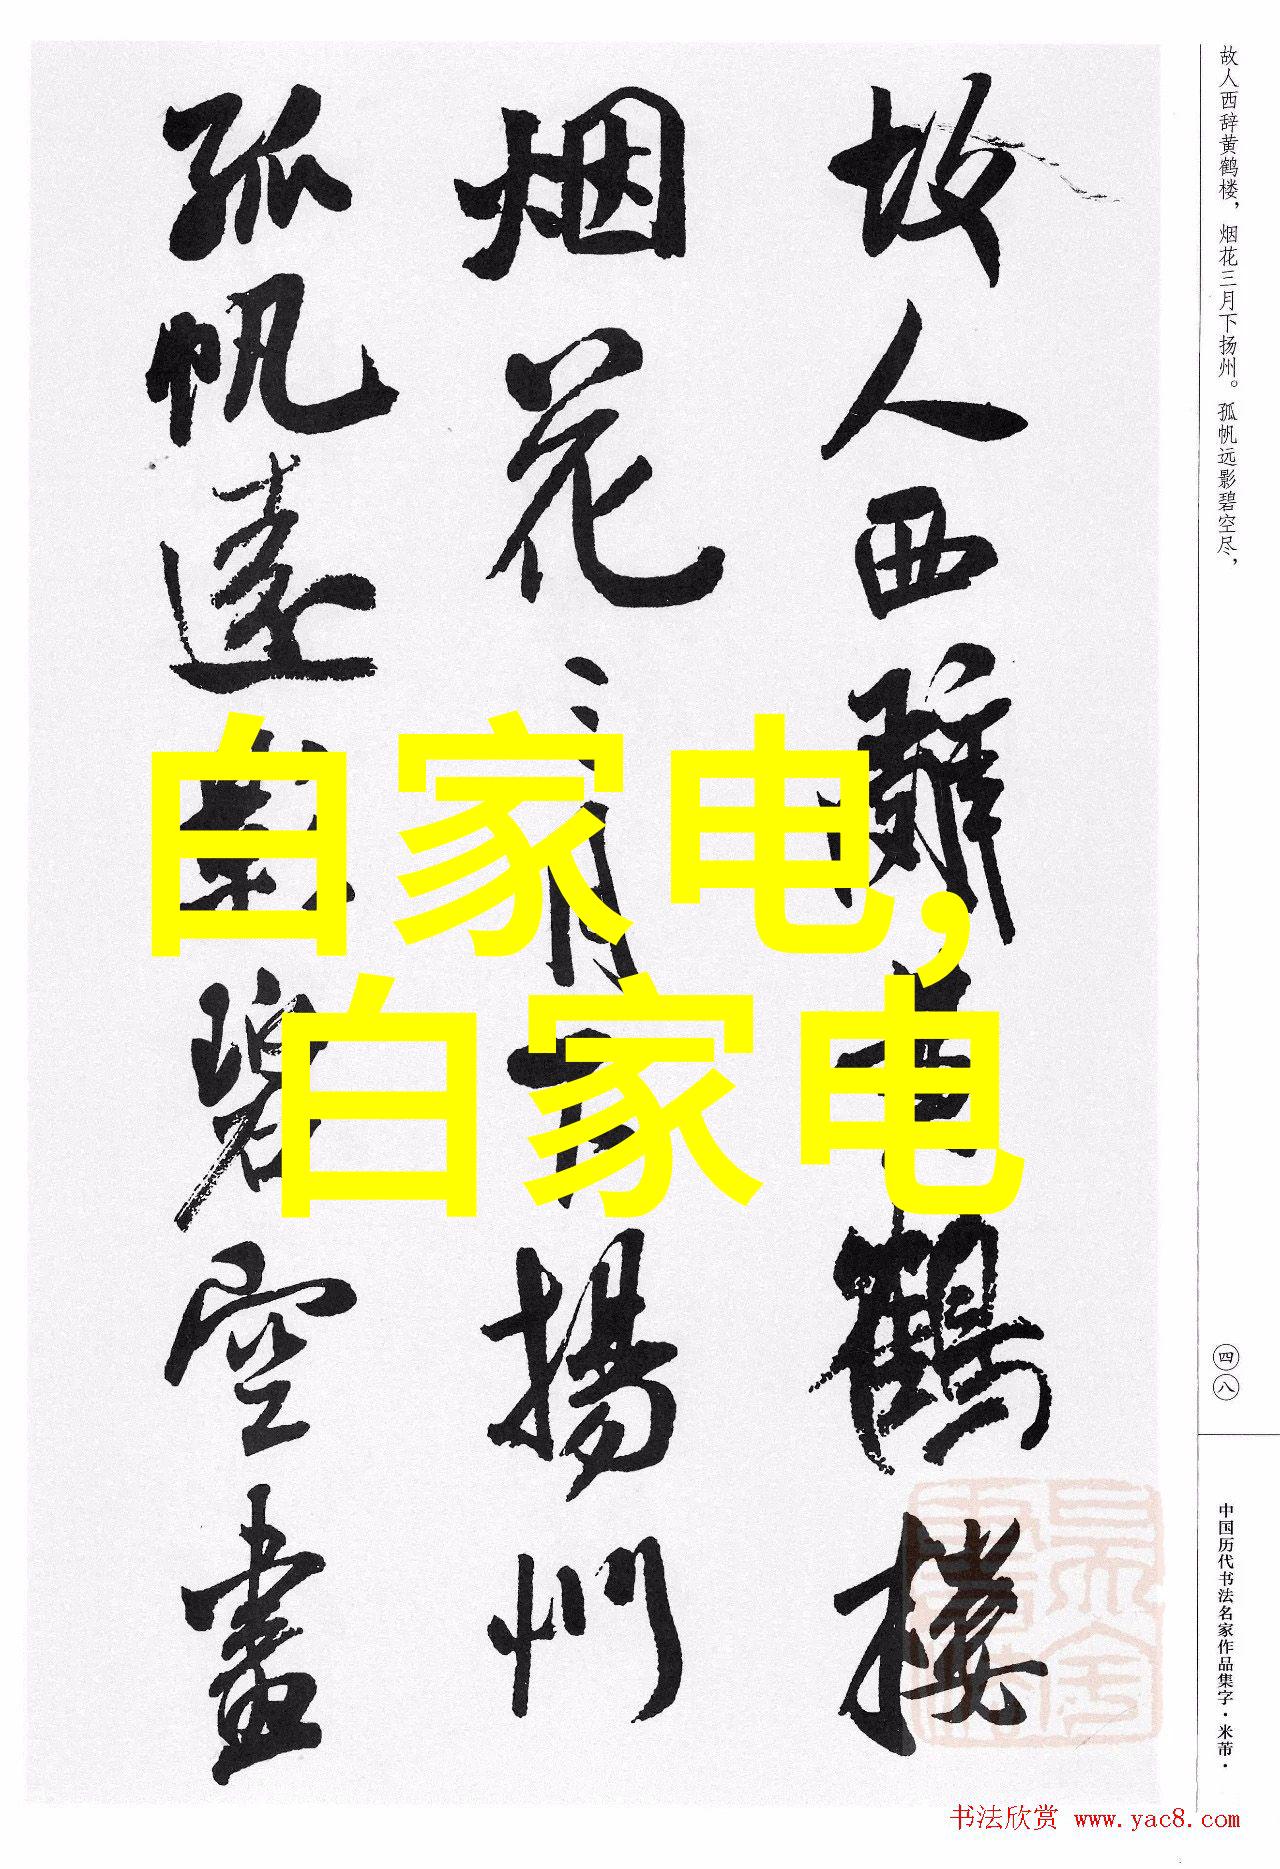 故人西辞黄鹤楼
烟花三月下揚州
孤帆遠影碧空盡
白家电，
白家电
故人西辞黄鹤楼，烟花三月下扬州。孤帆远影碧空尽，
四八
中国历代书法名家作品集字·米芾·
书法欣赏 www.yac8.com